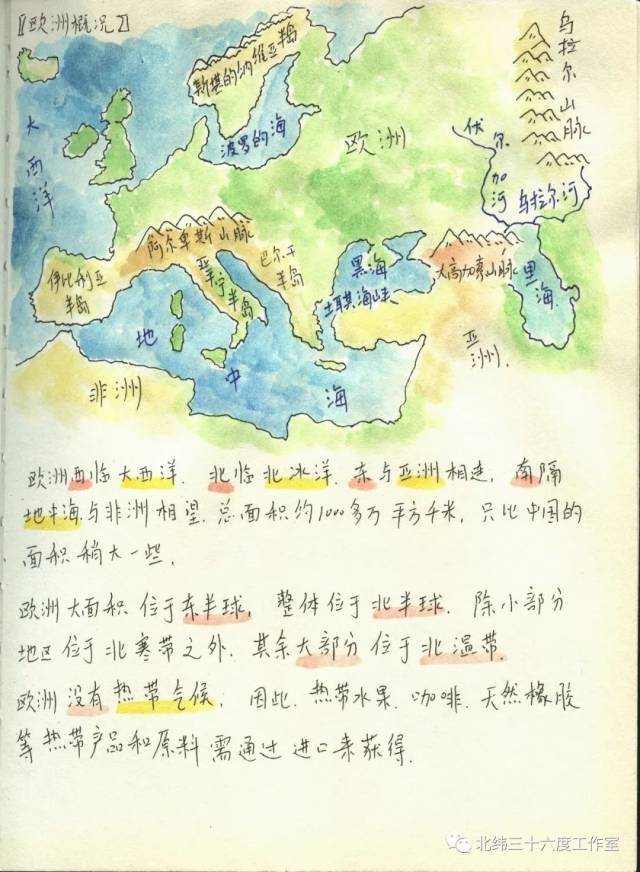 【欧洲概况】
大西洋
斯堪的纳维亚半岛
波罗的海
欧洲
乌拉尔山脉
伏尔加河
乌拉尔河
阿尔卑斯山脉
伊比利亚
半岛
亚平宁半岛
巴尔干
半岛
黑海
土耳其海峡
大高加索山脉
里海
亚洲.
地中海
非洲
欧洲西临大西洋. 北临北冰洋. 东与亚洲相连, 南隔
地中海与非洲相望. 总面积约1000多万平方千米, 只比中国的
面积稍大一些.
欧洲大面积位于东半球, 整体位于北半球. 除小部分
地区位于北寒带之外. 其余大部分位于北温带.
欧洲没有热带气候, 因此. 热带水果. 咖啡. 天然橡胶
等热带产品和原料需通过进口来获得.
北纬三十六度工作室